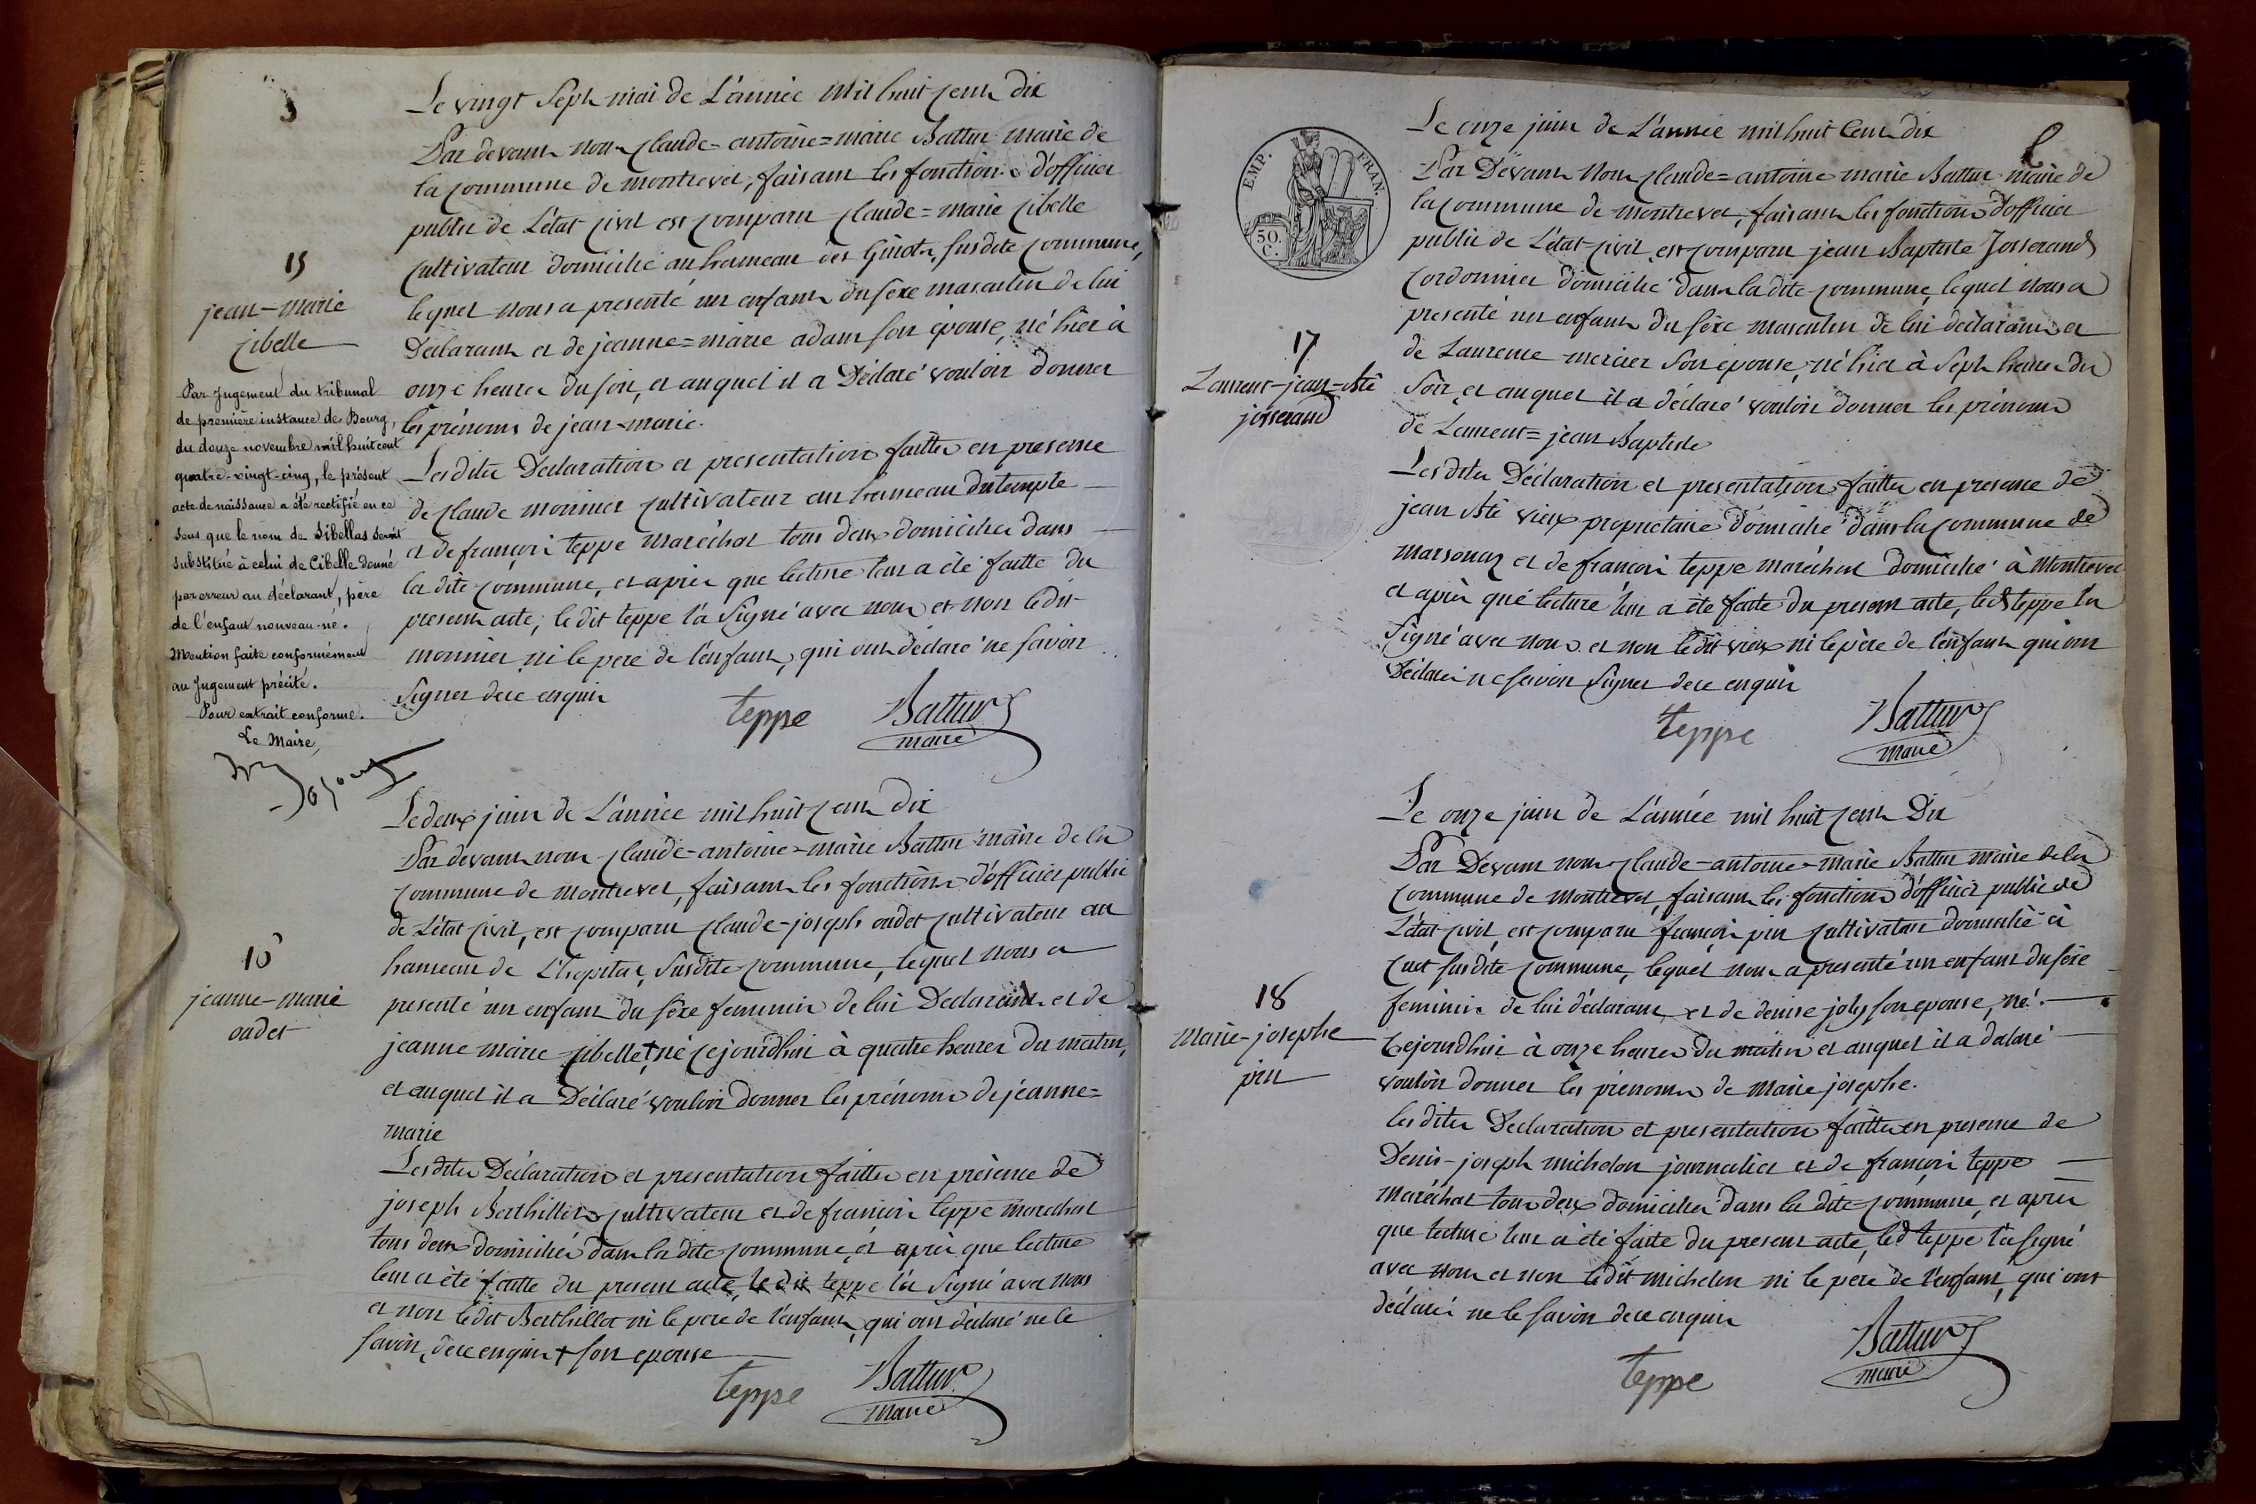 Le vingt Sept mai de L'année mil huit cent dix
Par devant nous claude=antoine=marie Battur maire de
la commune de montrevel, faisant les fonctions d'officier
public de L'état civil est comparu claude=marie cibelle
cultivateur domicilié au hameau des Girots, susdite commune,
lequel nous a presenté un enfant du sêxe masculin de lui
Déclarant et de jeanne=marie adam son épouse, né hier à
onze heures du soir, et auquel il a Déclaré vouloir donner
les prénoms de jean-marie.
Lesdites Declaration et presentation faittes en presence
de claude monnier cultivateur au hameau du temple
et de françois teppe maréchal tous deux domiciliés dans
la dite commune, et après que lecture leur a été faitte du
present acte, le dit teppe l'a signé avec nous et non le dit
monnier ni le pere de l'enfant, qui ont déclaré ne savoir
signer de ce enquis
teppe Battur
maire
15
jean-marie
cibelle
Par Jugement du tribunal
de première instance de Bourg,
du douze novembre mil huit cent
quatre-vingt-cinq, le présent
acte de naissance a été rectifié en ce
sens que le nom de Sibellas serait
substitué à celui de Cibelle donné
par erreur au déclarant, père
de l'enfant nouveau-né.
Mention faite conformément
au Jugement précité.
Pour extrait conforme.
Le Maire,
Le deux juin de L'année mil huit cent dix
Par devant nous claude-antoine-marie Battur maire de la
commune de montrevel, faisant les fonctions d'officier public
de L'état civil, est comparu claude-joseph oudet cultivateur au
hameau de L'hopital, susdite commune, lequel nous a
presenté un enfant du sêxe feminin de lui Declarant et de
jeanne marie cibelle + né cejourdhui à quatre heures du matin,
et auquel il a Déclaré vouloir donner les prénoms de jeanne=
marie
Lesdites Déclaration et presentation faittes en présence de
joseph Berthillet cultivateur et de françois teppe marechal
tous deux domiciliés dans la dite commune, et après que lecture
leur a été faitte du present acte, le dit teppe l'a signé avec nous
et non le dit Berthillet ni le pere de l'enfant, qui ont déclaré ne le
savoir, de ce enquis + son epouse
teppe Battur
maire
16
jeanne-marie
oudet
EMP. FRAN.
50.
C.
Le onze juin de L'année mil huit Cent dix
Par Dévant Nous claude=antoine marie Battur maire de
la commune de montrevel, faisant les fonctions d'officier
public de L'état-civil est comparu jean Baptiste Josserand
cordonnier domicilié dans la dite commune, lequel nous a
presenté un enfant du sêxe masculin de lui declarant et
de Laurence mercier son épouse, né hier à sept heures du
soir, et auquel il a déclaré vouloir donner les prénoms
de Laurent=jean Baptiste
Lesdites Déclaration et presentation faittes en presence de
jean Bte vieux propriétaire domicilié dans la commune de
marsonnaz et de françois teppe maréchal domicilié à Montrevel
et après que lecture leur a été faite du present acte, led teppe l'a
signé avec nous et non ledit vieux ni le père de l'enfant qui ont
Déclaré ne savoir signer de ce enquis
teppe Battur
maire
17
Laurent-jean-Bte
josserand
Le onze juin de L'année mil huit cent Dix
Par Devant nous claude-antoine-marie Battur maire de la
commune de montrevel, faisant les fonctions d'officier public de
L'état civil est comparu françois pin cultivateur domicilié à
Cuet susdite commune, lequel nous a presenté un enfant du sêxe
feminin de lui déclarant et de denise joly son epouse, né
Cejourdhui à onze heures du matin et auquel il a déclaré
vouloir donner les prénoms de marie josephe.
les dites Declaration et presentation faittes en presence de
Denis-joseph michelon journalier et de françois teppe
maréchal tous deux domiciliés dans la dite commune, et après
que lecture leur a été faite du present acte, led teppe l'a signé
avec nous et non ledit michelon ni le pere de l'enfant, qui ont
déclaré ne le savoir de ce enquis
teppe Battur
maire
18
marie-josephe
pin